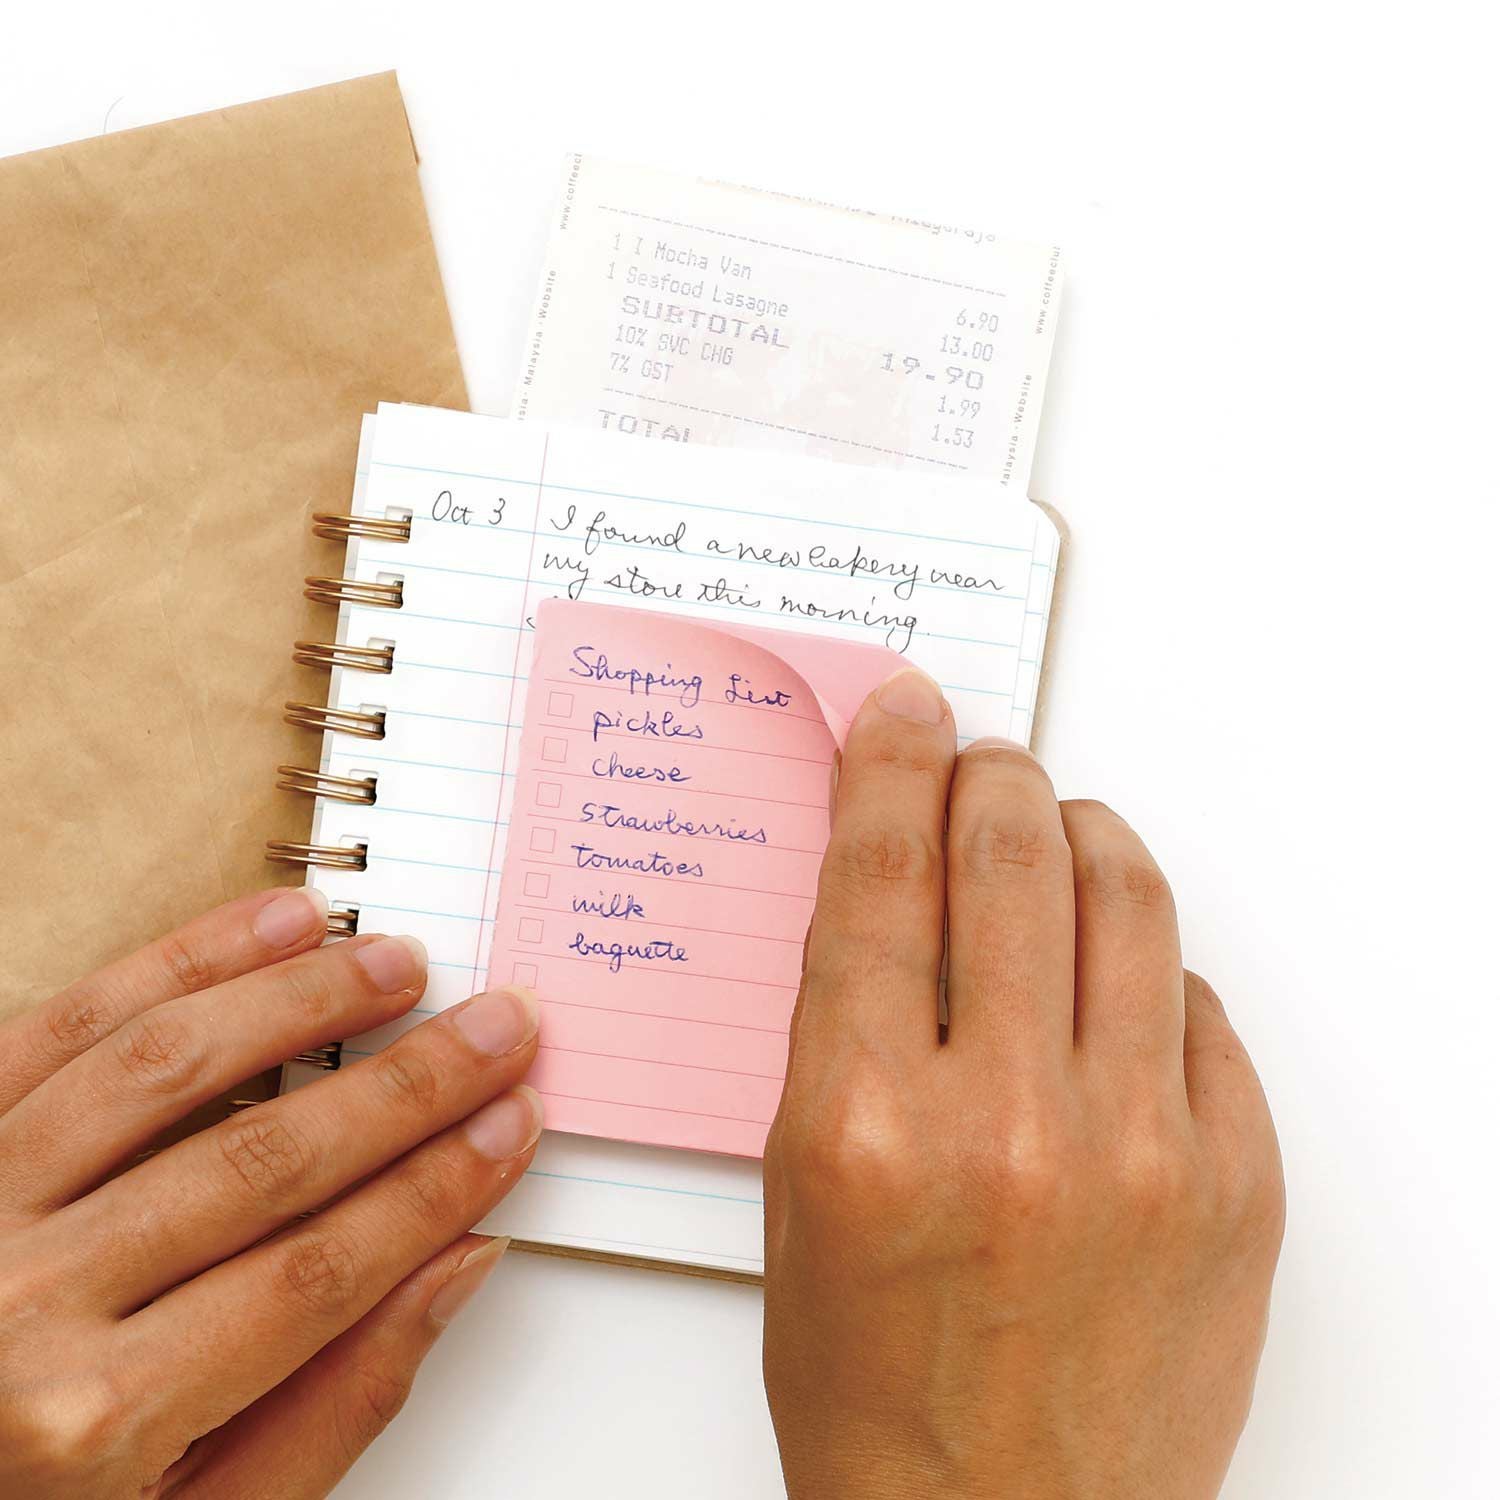 www.coffeeclu
1 I Mocha Van 6.90
1 Seafood Lasagne 13.00
SUBTOTAL 19.90
10% SVC CHG 1.99
7% GST 1.53
TOTAL
Malaysia · Website
www.coffeeclu
alaysia · Website
Oct 3 I found a new bakery near
my store this morning.
Shopping List
pickles
cheese
strawberries
tomatoes
milk
baguette